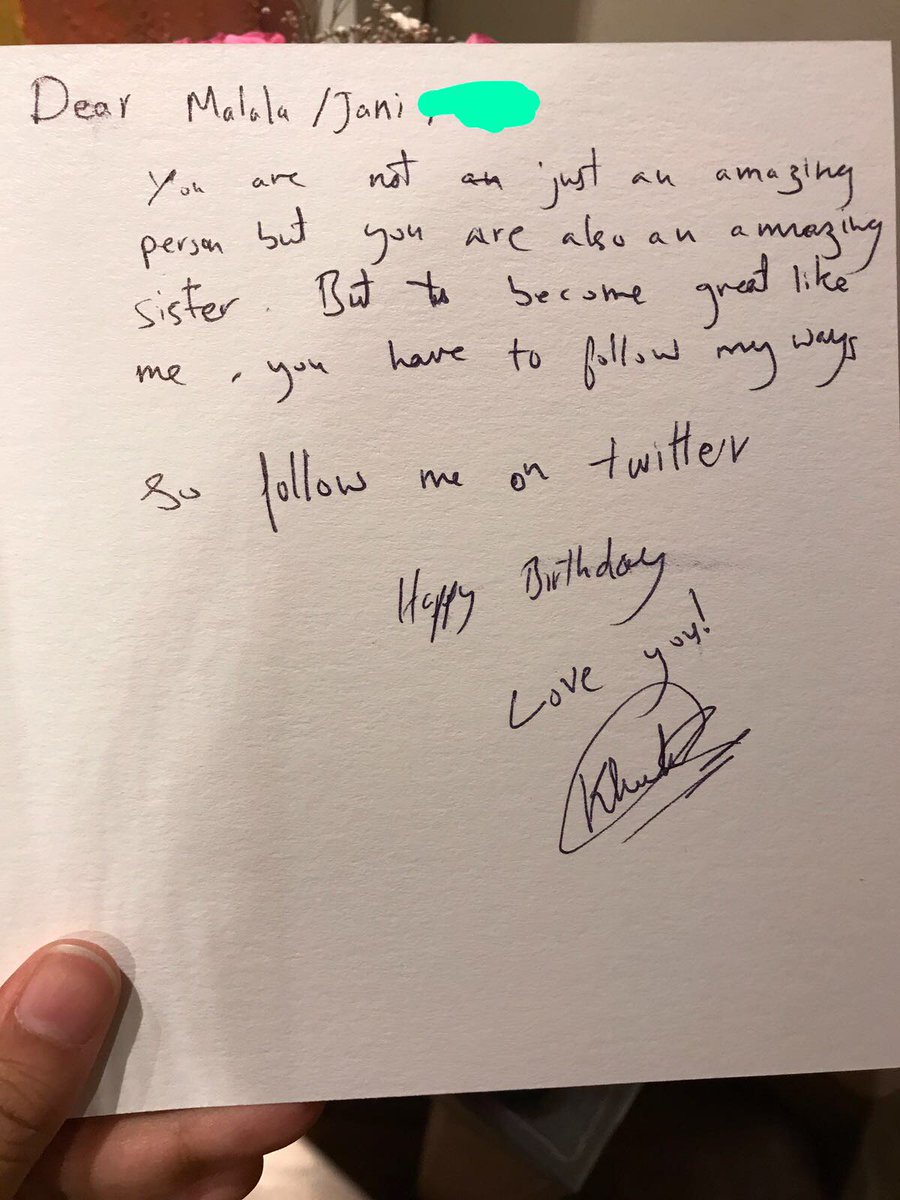 Dear Malala /Jani,
You are not an just an amazing
person but you are also an amazing
sister. But to become great like
me, you have to follow my ways
So follow me on twitter
Happy Birthday
Love you!